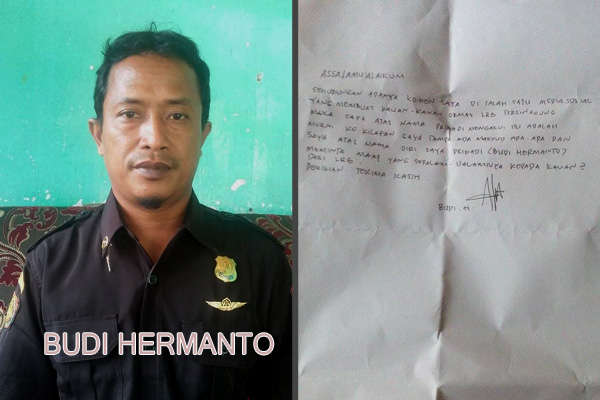 BUDI HERMANTO
ASSALAMU'ALAIKUM
SEHUBUNGAN ADANYA KOMEN SAYA DI SALAH SATU MEDIA SOSIAL
YANG MEMBUAT KAWAN-KAWAN ORMAS LRB TERSINGGUNG
MAKA SAYA ATAS NAMA PRIBADI MENGAKUI ITU ADALAH
MURNI KEKILAPAN SAYA TANPA ADA MAKSUD APA-APA DAN
SAYA ATAS NAMA DIRI SAYA PRIBADI (BUDI HERMANTO)
MEMINTA MAAF YANG SEDALAM-DALAMNYA KEPADA KAWAN2
DARI LRB.
DEMIKIAN TERIMA KASIH
BUDI. H.